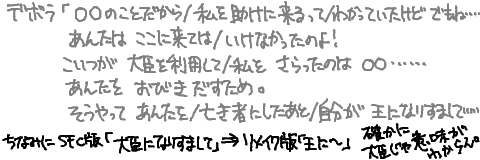 デボラ「○○のことだから/私を助けに来るって/わかっていたけど でもね…
あんたは ここに来ては/いけなかったのよ!
こいつが 大臣を利用して/私を さらったのは ○○……
あんたを おびきだすため。
そうやって あんたを/亡き者にしたあと/自分が 王になりすまして…
ちなみに SFC版「大臣になりすまして」⇒リメイク版「王に〜」
確かに
大臣じゃ意味が
わからん。